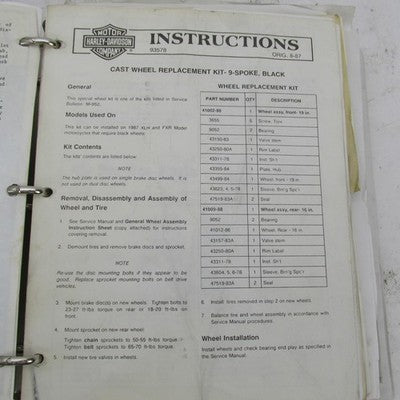 MOTOR
HARLEY-DAVIDSON
COMPANY
INSTRUCTIONS
93578
ORIG. 8-87
CAST WHEEL REPLACEMENT KIT- 9-SPOKE, BLACK
General
This special wheel kit is one of the kits listed in Service
Bulletin M-952.
Models Used On
This kit can be installed on 1987 XLH and FXR Model
motorcycles that require black wheels.
Kit Contents
The kits' contents are listed below:
NOTE
The hub plate is used on single brake disc wheels. It is
not used on dual disc wheels.
Removal, Disassembly and Assembly of
Wheel and Tire
1. See Service Manual and General Wheel Assembly
Instruction Sheet (copy attached) for instructions
covering removal.
2. Demount tires and remove brake discs and sprocket.
NOTE
Re-use the disc mounting bolts if they appear to be
good. Replace sprocket mounting bolts on belt drive
vehicles.
3. Mount brake disc(s) on new wheels. Tighten bolts to
23-27 ft-lbs torque on rear or 18-20 ft-lbs on
front.
4. Mount sprocket on new rear wheel:
Tighten chain sprockets to 50-55 ft-lbs torque.
Tighten belt sprockets to 65-70 ft-lbs torque.
5. Install new tire valves in wheels.
WHEEL REPLACEMENT KIT
PART NUMBER QTY DESCRIPTION
41002-88 1 Wheel assy, front- 19 in.
3655 5 Screw, Torx
9052 2 Bearing
43150-83 1 Valve stem
43250-80A 1 Rim Label
43311-78 1 Inst. Sh't
43395-84 1 Plate, Hub
43499-84 1 Wheel, front -19 in.
2 Seal
41009-88 1 Wheel assy, rear- 16 in.
9052 2 Bearing
1 Wheel, Rear -16 in.
43157-83A 1 Valve stem
43250-80A 1 Rim Label
43311-78 1 Inst. Sh't
47519-83A 2 Seal
6. Install tires removed in step 2 on new wheels.
7. Balance tire and wheel assembly in accordance with
Service Manual procedures.
Wheel Installation
Install wheels and check bearing end play as specified in
the Service Manual.